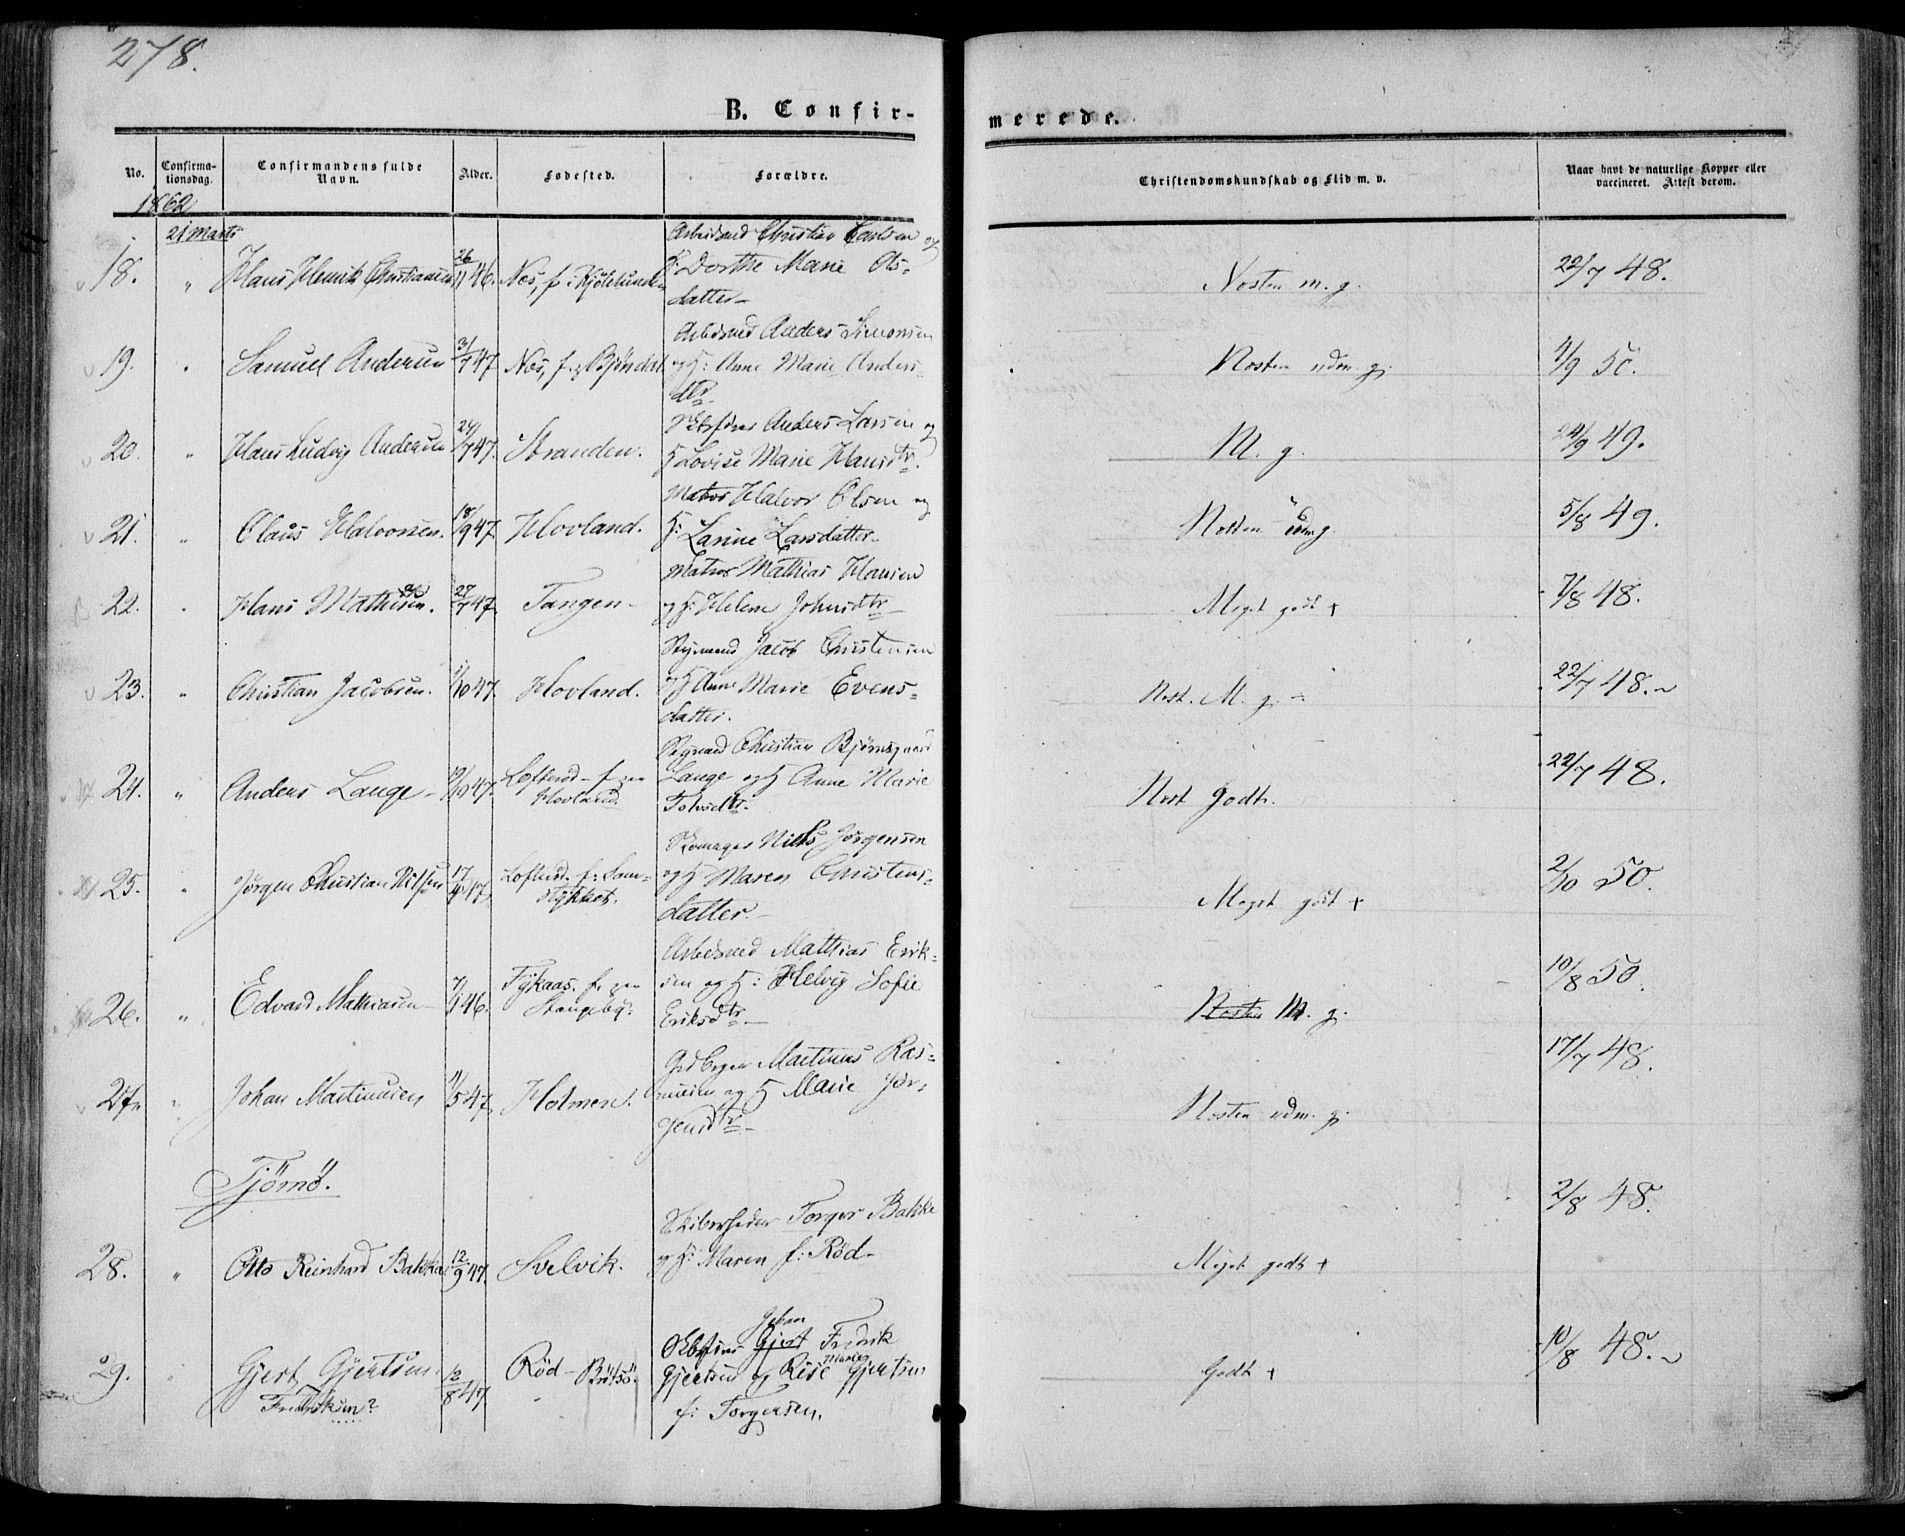 278.
B. Confir-
merede.
No.
Confirma-
tionsdag.
Confirmandens fulde
Navn.
Alder.
Fødested.
Forældre.
Christendomskundskab og Flid m. v.
Naar havt de naturlige Kopper eller
vaccineret. Attest derom.
1862
21 Marts
18. " Hans Henrik Christiansen 26/11 46. Nes, f.
Christian Carlsen og
Dorthe Marie Ols-
datter
Nosten m. g. 22/7 48.
19. " Samuel Andersen 47 Nes, f. Bjøndal
Anders Simonsen
og H: Anne Marie Anders
dtr.
Nosten udm. g. 4/9 50.
20. " Hans Ludvig Andersen 24/7 47. Stranden.
Anders Larsen og
H Lovise Marie Hansdtr.
M. g. 24/9 49.
21. " Claus Halvorsen. 18/9 47. Hovland.
Matros Halvor Olsen og
H: Larine Larsdatter
Nosten udm g. 5/8 49.
22. " Hans Mathisen. 27/7 47. Tangen
Matros Mathias Hansen
og H: Helene Johnsdtr
Meget godt + 7/8 48.
23. " Christian Jacobsen. 1/10 47. Hovland.
Styrmand Jacob Christensen
og H Anne Marie Evens-
datter.
Nost. M. g. 22/7 48.
24. " Anders Lange 47. f.
Hovland.
Christian Bjørnsgaard
Lange og H Anne Marie
Nost Godt. 22/7 48.
25. " Jørgen Christian Nilsen 47. f:
Niels Jørgensen
og H Maren Christens-
datter.
Meget godt + 2/10 50.
26. " Edvard Mathiasen 46. f.
Mathias Erik-
sen og H: Helvig Sofie
Eriksdtr.
Nosten M. g. 10/8 50.
27. " Johan Martinusen 11/5 47. Holmen.
Martinus Ras-
musen og H Marie Jør-
gensdtr.
Nosten udm. g. 17/7 48.
Tjömö.
28. " Otto Reinhard Bakke 12/9 47. Svelvik.
Skibsrheder Torger Bakke
og H: Maren f: Röd
Meget godt + 2/8 48.
29. " Gjert Gjertsen. 12/8 47. Röd
Fredriksen?
Johan
Gjert Fredrik
Marie
Gjertsen og Gjertsen
f: Torgersen.
Godt + 10/8 48.